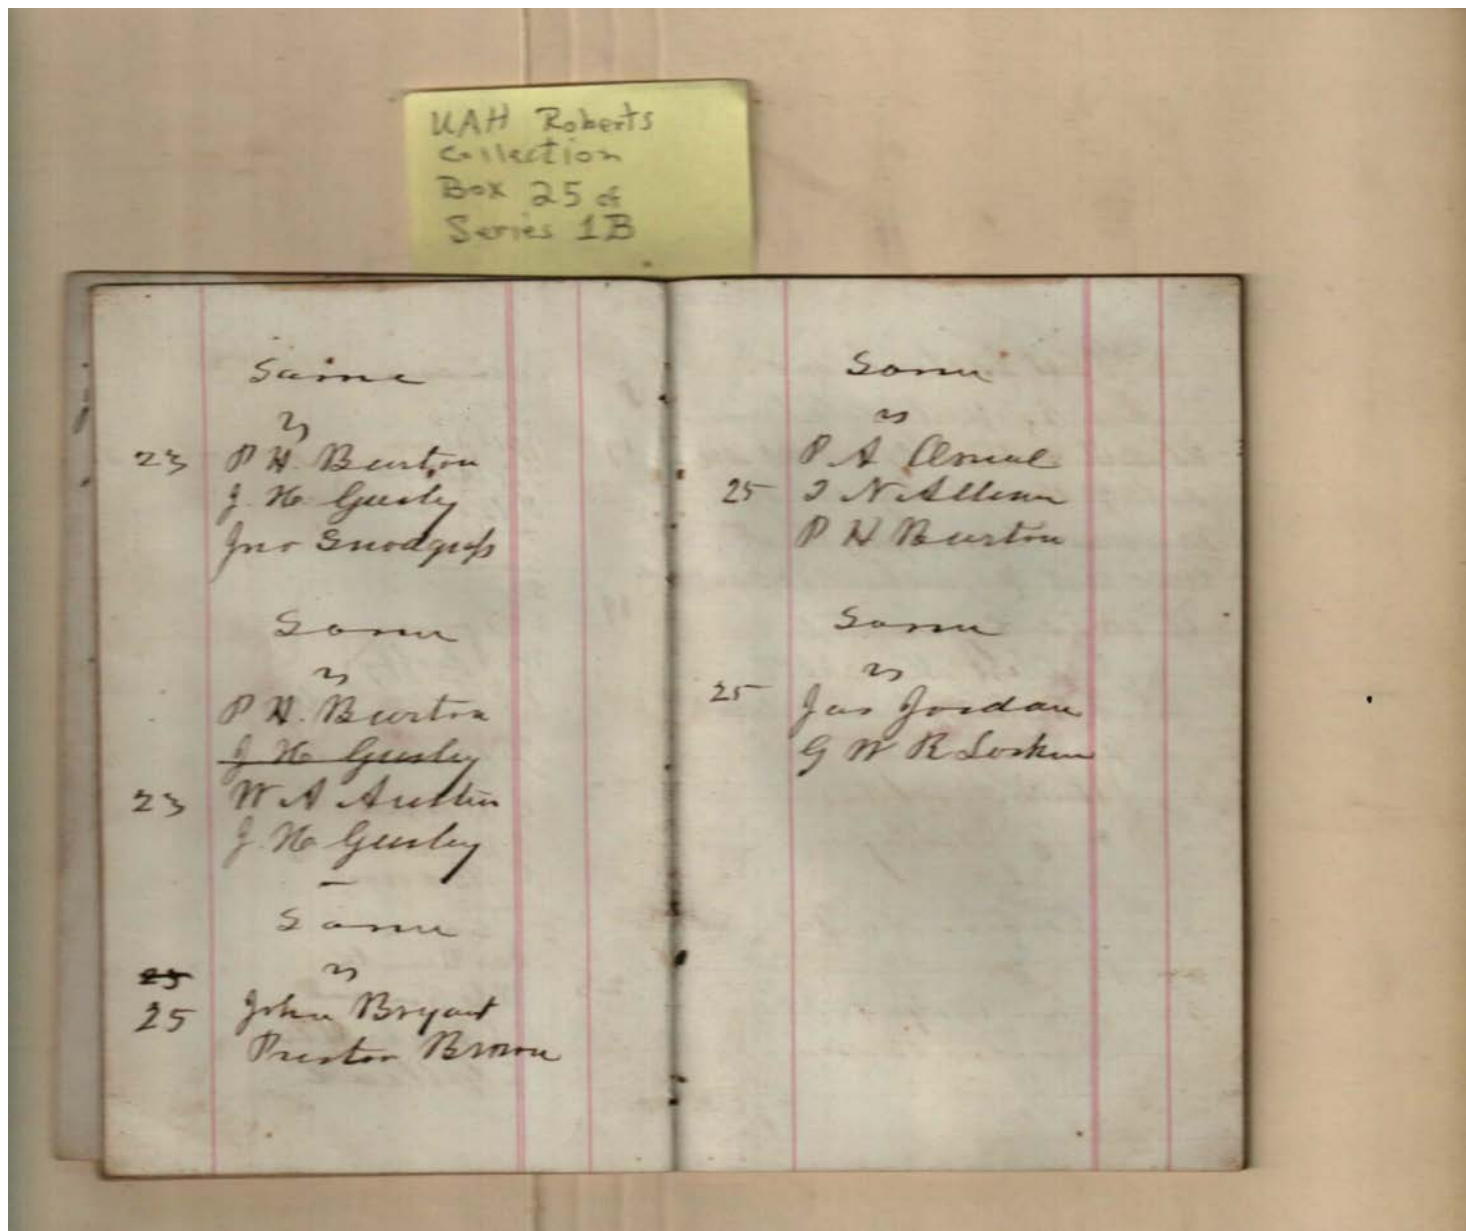 UAH Roberts
Collection
Box 25 of
Series 1B
Same
vs
23 P H. Burton
J. H. Gurley
Jno Snodgrass
Same
vs
P H. Burton
J H Gurley
23 W A Austin
J. H Gurley
Same
23 vs
25 John Bryant
Preston Brown
Same
vs
P A
25 N Allison
P H Burton
Same
vs
25 Jas Jordan
G W R